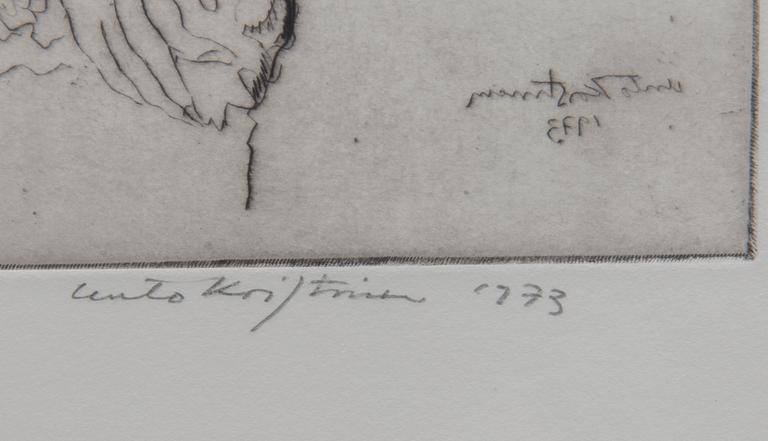 Unto Koistinen
1973
Unto Koistinen 1973